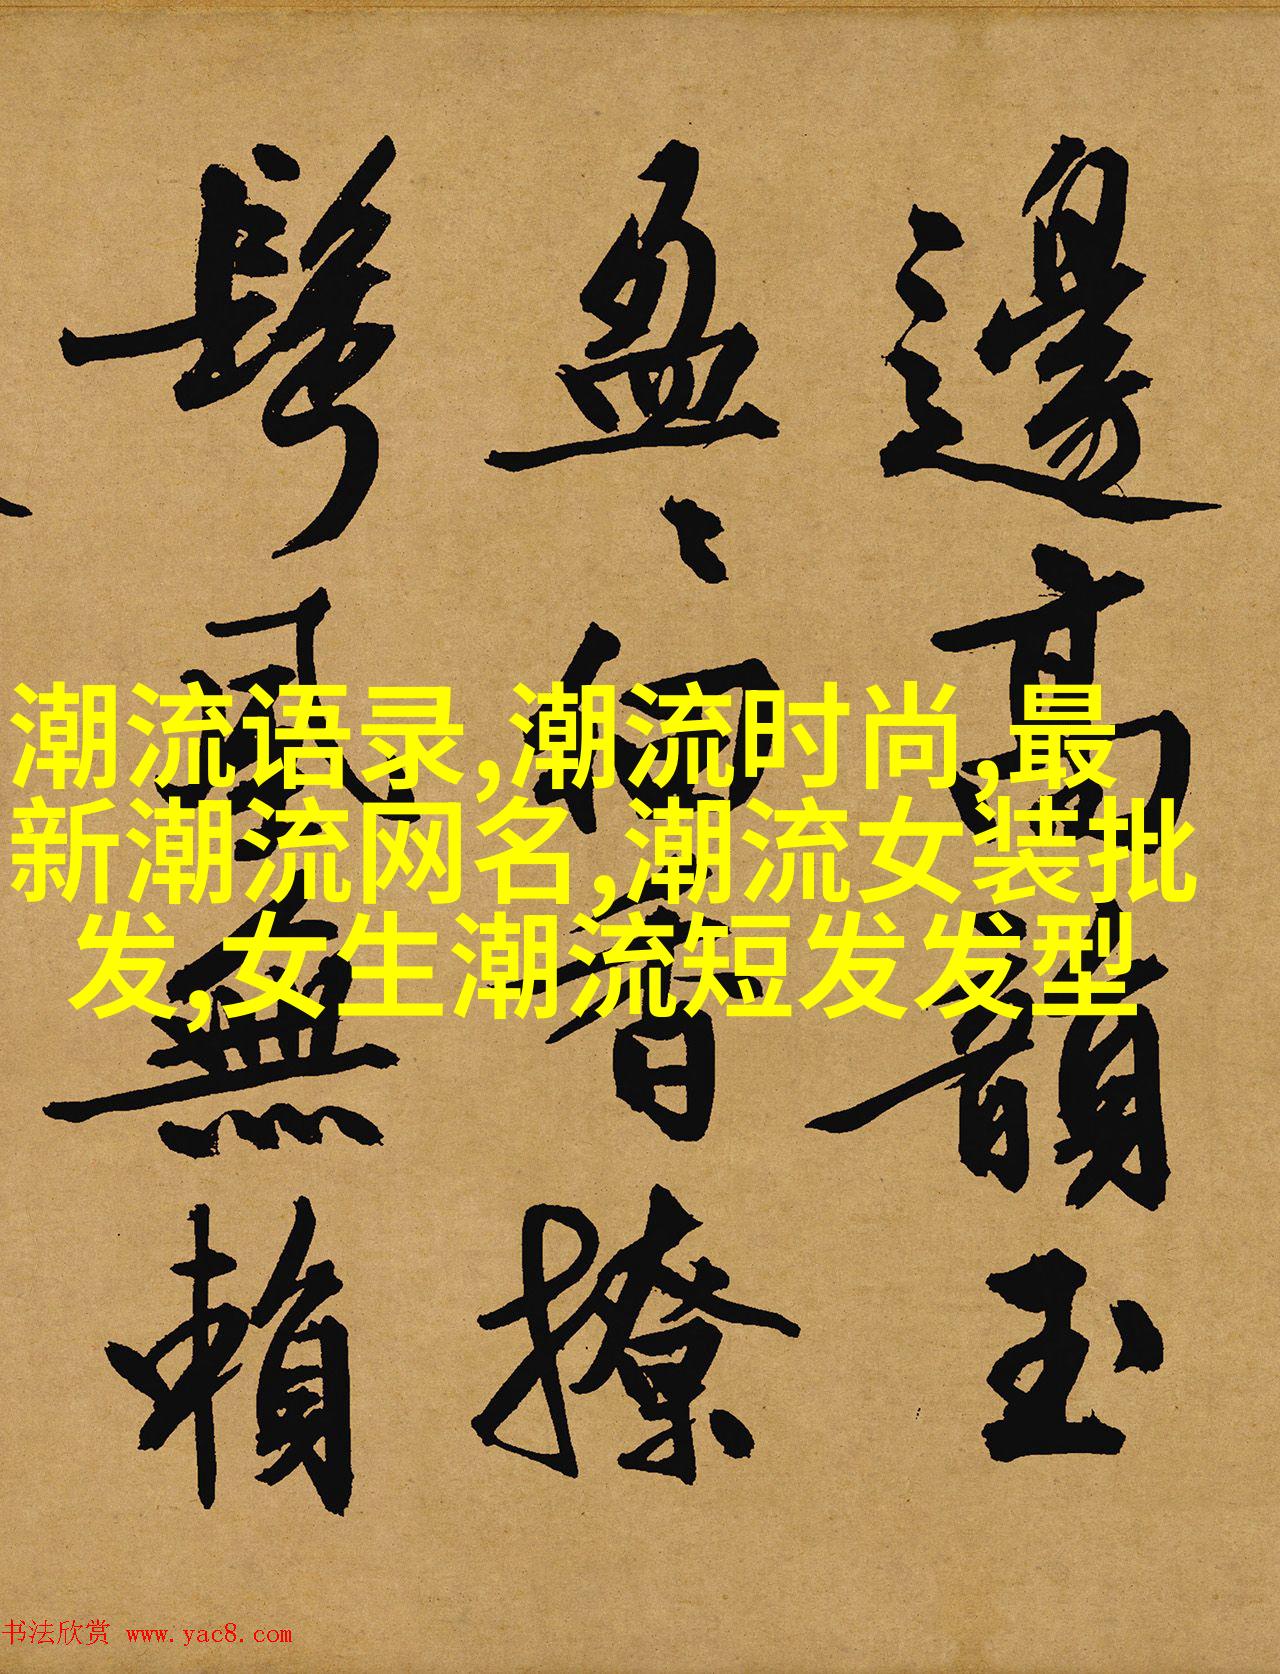 邊高韻玉
盈〻細香撩
鬢風無賴
潮流语录,潮流时尚,最
新潮流网名,潮流女装批
发,女生潮流短发发型
书法欣赏 www.yac8.com